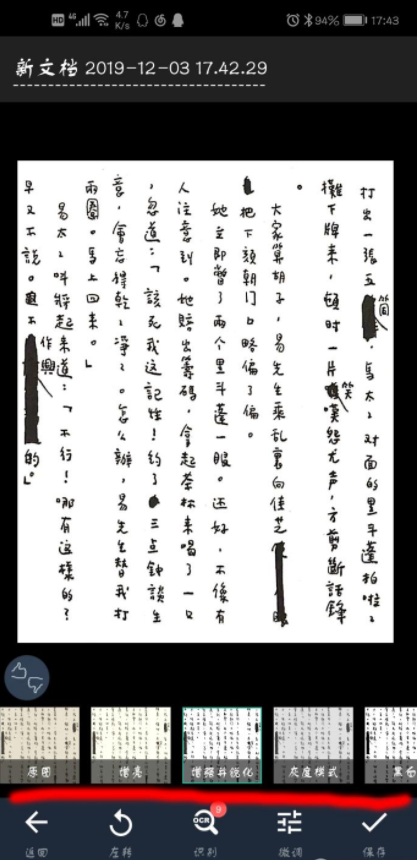 HD 4G 4.7 K/s 94% 17:43
新文档 2019-12-03 17.42.29
打出一張五筒,馬太々对面的黑斗蓬拍啦々
攤下牌来,頓时一片笑嘆怨尤声,方剪斷話鋒
。
大家算胡子,易先生乘乱裏向佳芝
把下頦朝门口略偏了偏。
她立即瞥了兩个黑斗蓬一眼。还好,不像有
人注意到。她賠出籌碼,拿起茶杯来喝了一口
,忽道:「該死我这記性!約了三点鐘談生
意,會忘得乾々凈々。怎么辦,易先生替我打
兩圈。馬上回来。」
易太々叫將起来道:「不行!哪有这樣的?
早又不説。不作興的。」
原图 增亮 增强并锐化 灰度模式 黑白
9
OCR
返回 左转 识别 微调 保存